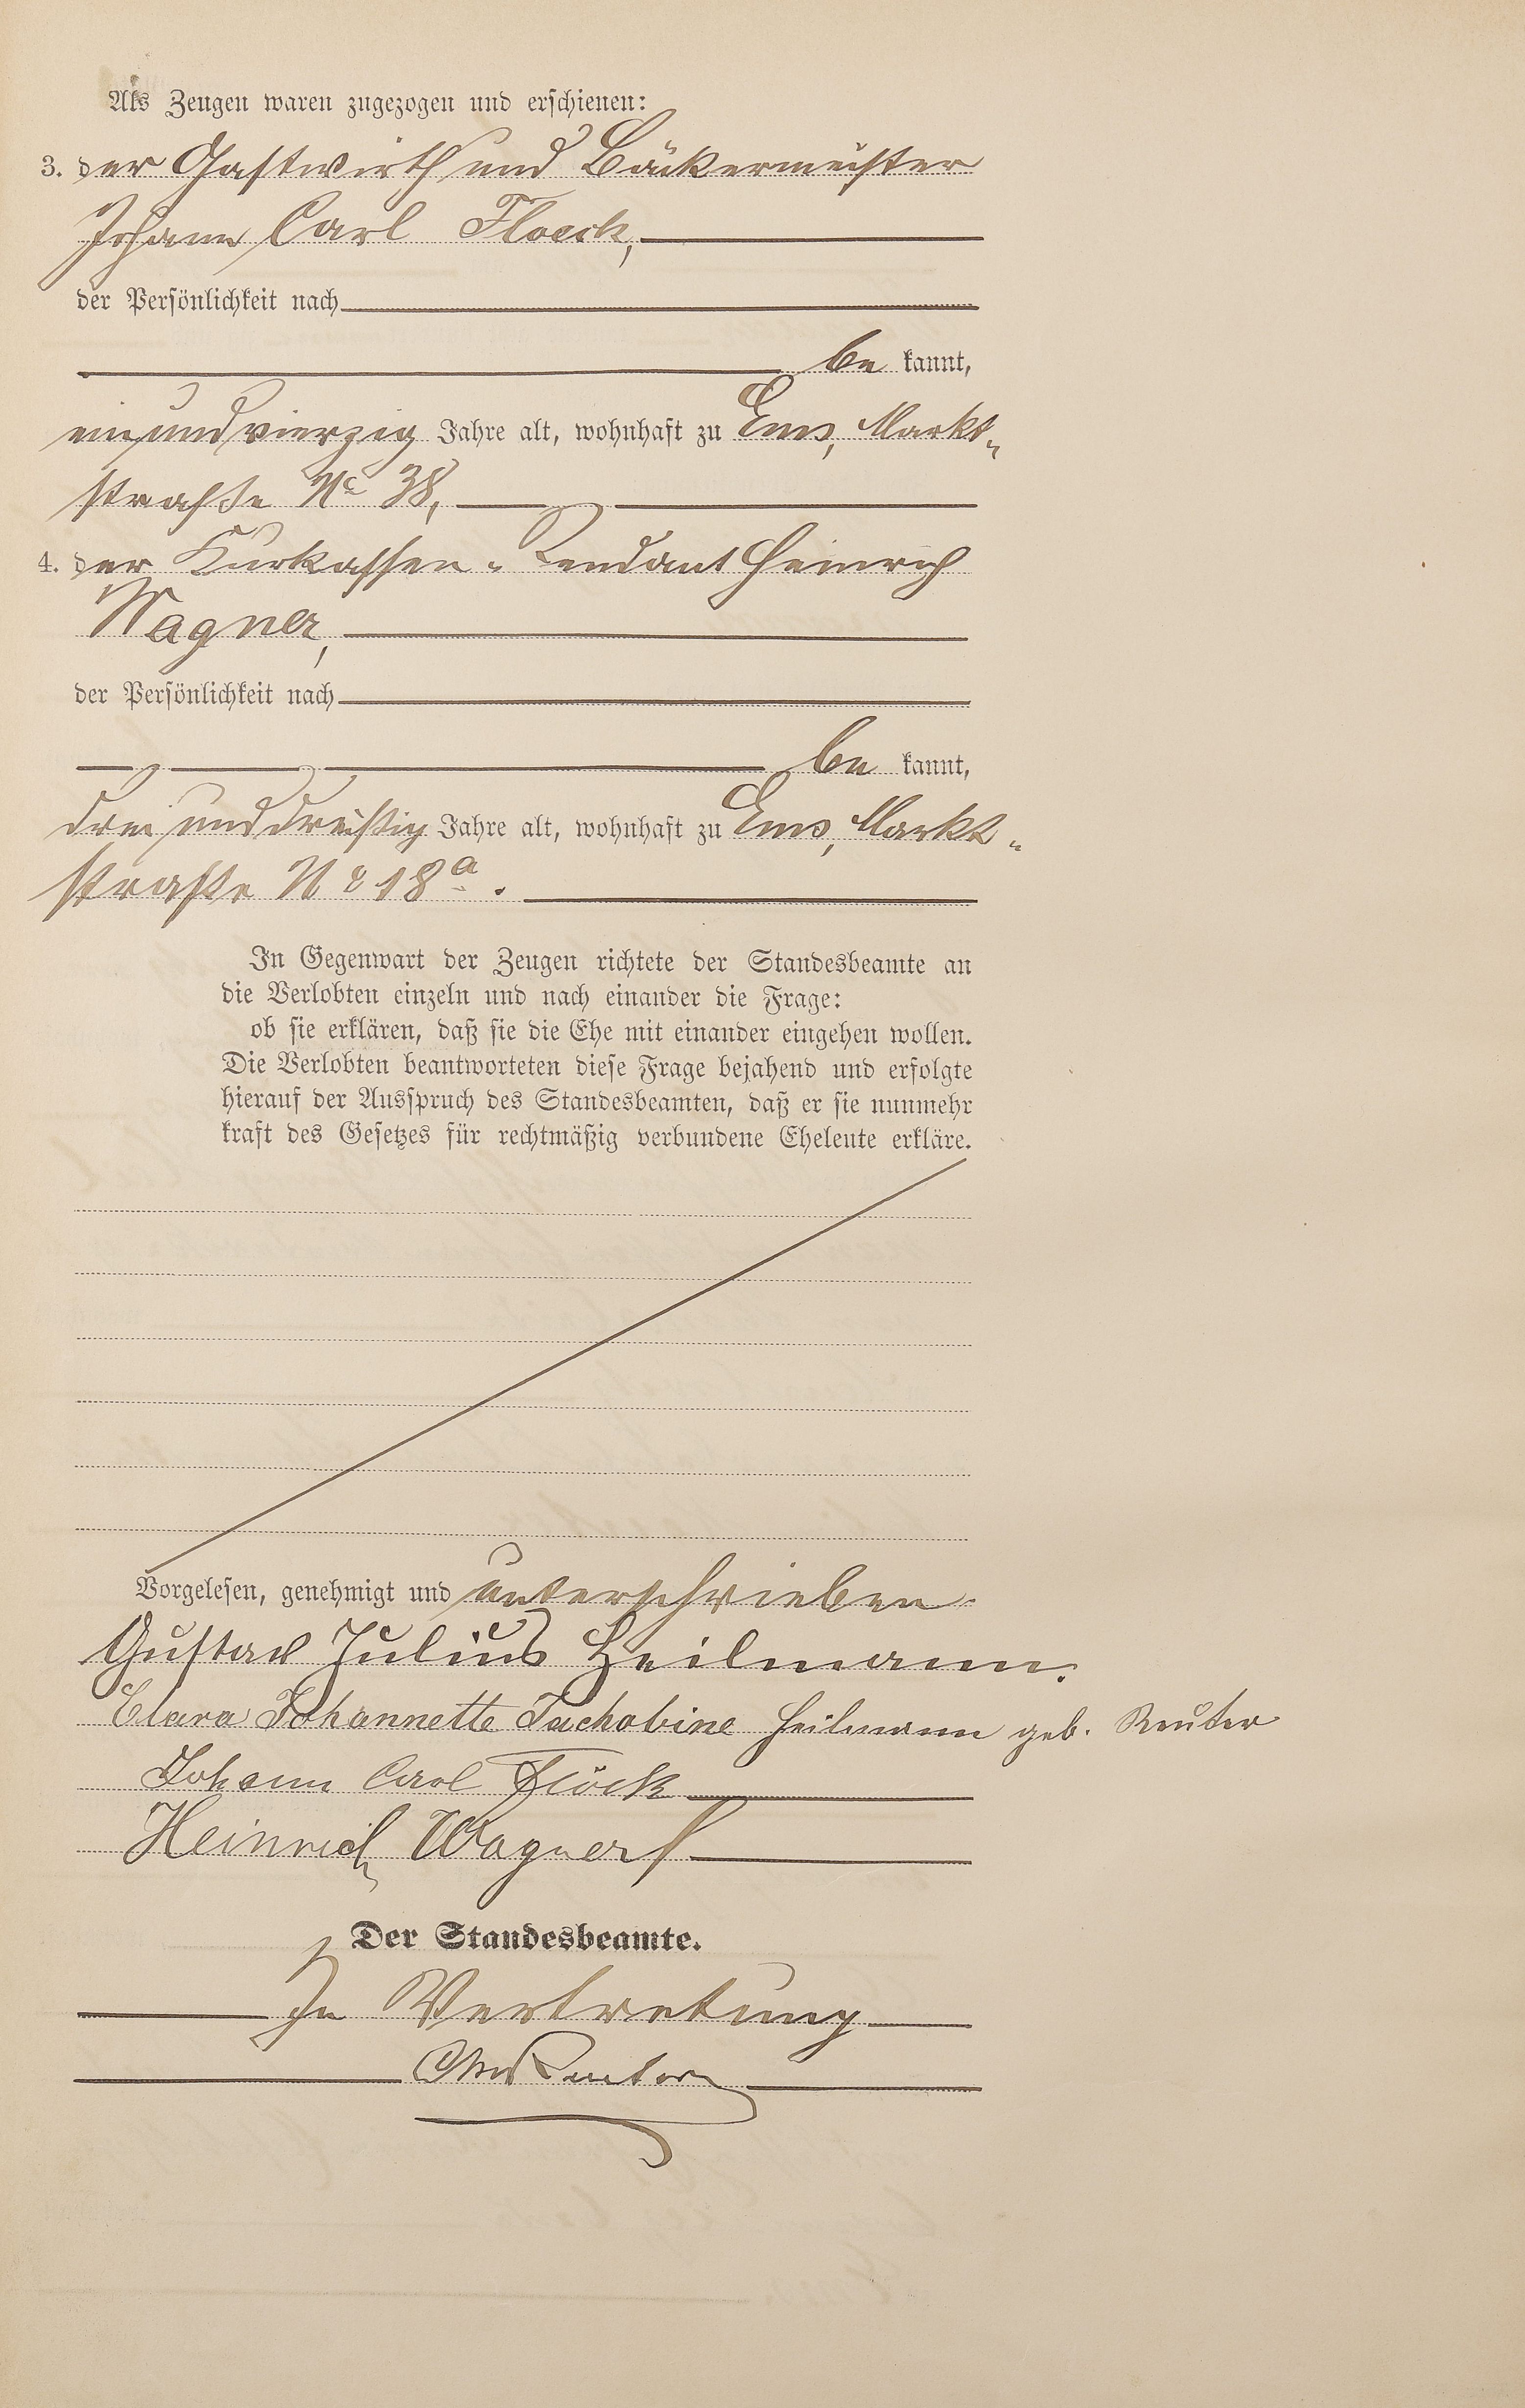 Als Zeugen waren zugezogen und erschienen:
3. der Gastwirth und Bäckermeister
Johann Carl Floeck,
der Persönlichkeit nach
be kannt,
ein und vierzig Jahre alt, wohnhaft zu Ems, Markt-
straße No 38,
4. der Kurkassen-Rendant Heinrich
Wagner,
der Persönlichkeit nach
be kannt,
drei und dreißig Jahre alt, wohnhaft zu Ems, Markt-
straße No 18a.
In Gegenwart der Zeugen richtete der Standesbeamte an
die Verlobten einzeln und nach einander die Frage:
ob sie erklären, daß sie die Ehe mit einander eingehen wollen.
Die Verlobten beantworteten diese Frage bejahend und erfolgte
hierauf der Ausspruch des Standesbeamten, daß er sie nunmehr
kraft des Gesetzes für rechtmäßig verbundene Eheleute erkläre.
Vorgelesen, genehmigt und unterschrieben.
Gustav Julius Heilmann.
Clara Johannette Heilmann geb. Reuter
Johann Carl Flöck
Heinrich Wagner
Der Standesbeamte.
In Vertretung